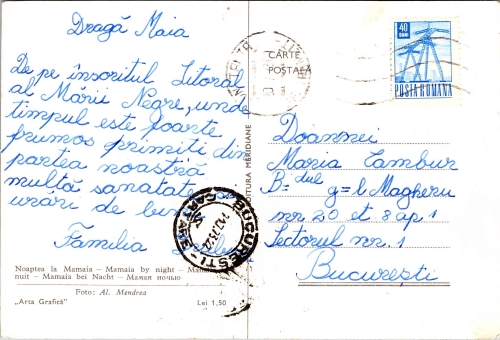 Dragă Maia
De pe însoritul Litoral
al Mării Negre, unde
timpul este foarte
frumos primiti din
partea noastră
multă sanatate
urări de bine
Familia
Noaptea la Mamaia — Mamaia by night — Mamaia
nuit — Mamaia bei Nacht — Мамая ночью
Foto: Al. Mendrea
„Arta Grafică"
Lei 1,50
EDITURA MERIDIANE
CARTE
POȘTALĂ
40
BANI
POSTA ROMANA
Doamnei
Maria Tambur
B= dul g=l Magheru
nr 20 et 8 ap 1
Sectorul nr. 1
București
BUCURESTI
CARTARE